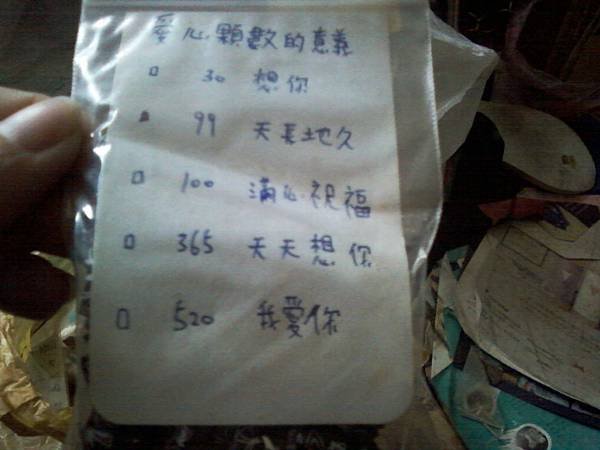 愛心顆數的意義
□ 30 想你
■ 99 天長地久
□ 100 滿心祝福
□ 365 天天想你
□ 520 我愛你